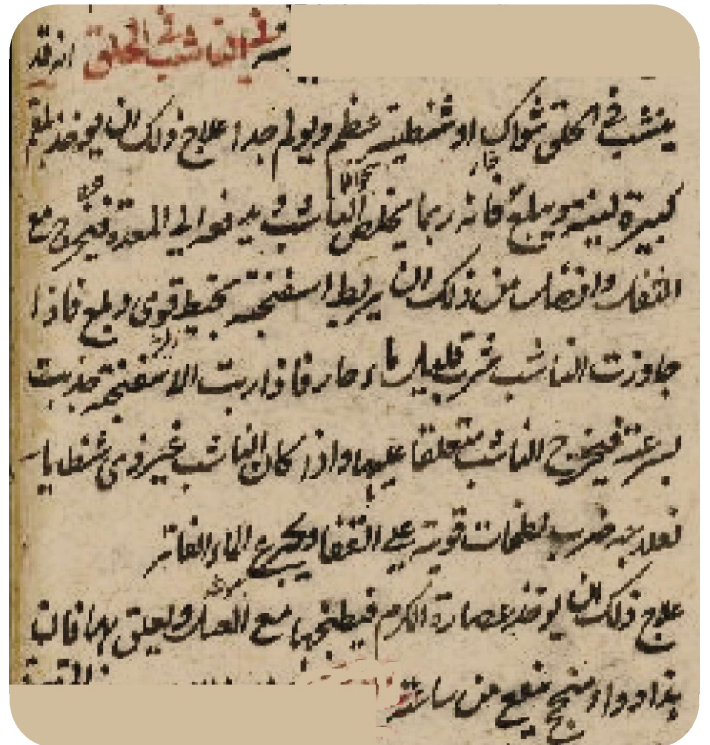 في الناشب في الحلق انه قد
ينشب في الحلق شواك او شظية عظم ويولم جدا علاج ذلك ان يوخذ لقم
كبيرة لينة ويبلع فانه ربما يخلص الناشب ويدفعه الي المعدة فيخرج مع
الثفل وافضل من ذلك ان يربط اسفنجة بخيط قوى ويبلع فاذا
جاوزت الناشب شرب قليل ماء حار فاذا ربت الاسفنجة جذبت
بسرعة فيخرج الناشب متعلقا عليها واذا كان الناشب غير ذي شظايا
فعلاجه ضرب لطمات قوية علي القفا ويجرع الماء الفاتر
علاج ذلك ان يوخذ عصارة الكرم فيطبخها مع العسل ولعق بها فان
بهذا دواء منجح ينفع من ساعته